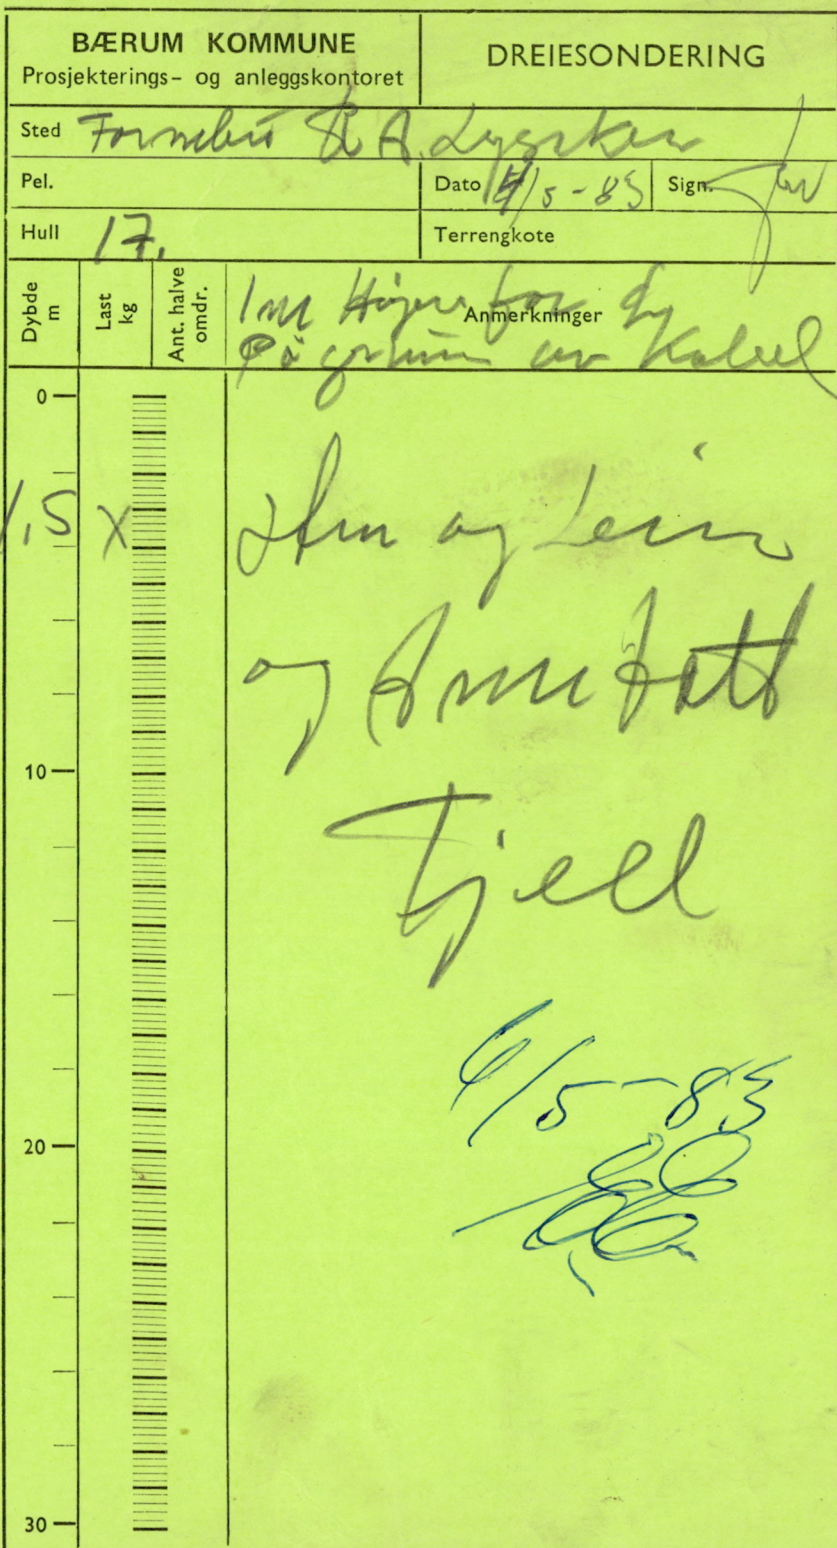 BÆRUM KOMMUNE
Prosjekterings- og anleggskontoret
DREIESONDERING
Sted Fornebu R A. Lysaker
Pel.
Dato 4/5-83
Sign.
Hull 17.
Terrengkote
Dybde m
Last kg
Ant. halve omdr.
Anmerkninger
1m Høyre for
På grunn av Kabel
0
1,5 X
og Leire
og Antatt
Fjell
10
6/5-83
20
30